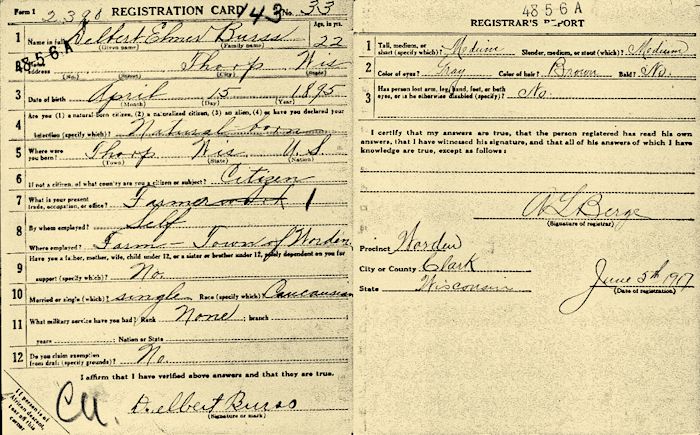 Form 1 2390 REGISTRATION CARD 743 No. 33
1 Name in full Delbert Elmer Buss Age, in yrs. 22
(Given name) (Family name)
48-5-6 A
address Thorp Wis
(No.) (Street) (City) (State)
3 Date of birth April 15 1895
(Month) (Day) (Year)
Are you (1) a natural-born citizen, (2) a naturalized citizen, (3) an alien, (4) or have you declared your
4 intention (specify which)? Natural born
5 Where were you born? Thorp Wis U.S.
(Town) (State) (Nation)
6 If not a citizen, of what country are you a citizen or subject? Citizen
7 What is your present trade, occupation, or office? Farmer work 1
8 By whom employed? Self
Where employed? Farm - Town of Worden
Have you a father, mother, wife, child under 12, or a sister or brother under 12, solely dependent on you for
9 support (specify which)? No
10 Married or single (which)? single Race (specify which)? Caucausian
11 What military service have you had? Rank None ; branch
years ; Nation or State
12 Do you claim exemption from draft (specify grounds)? No
I affirm that I have verified above answers and that they are true.
Delbert Buss
(Signature or mark)
If person is of African descent, tear off this corner
48-5-6 A
REGISTRAR'S REPORT
1 Tall, medium, or short (specify which)? Medium Slender, medium, or stout (which)? Medium
2 Color of eyes? Gray Color of hair? Brown Bald? No.
3 Has person lost arm, leg, hand, foot, or both eyes, or is he otherwise disabled (specify)? No.
I certify that my answers are true, that the person registered has read his own
answers, that I have witnessed his signature, and that all of his answers of which I have
knowledge are true, except as follows:
A L Berge
(Signature of registrar)
Precinct Worden
City or County Clark
State Wisconsin
June 5th 1917
(Date of registration)